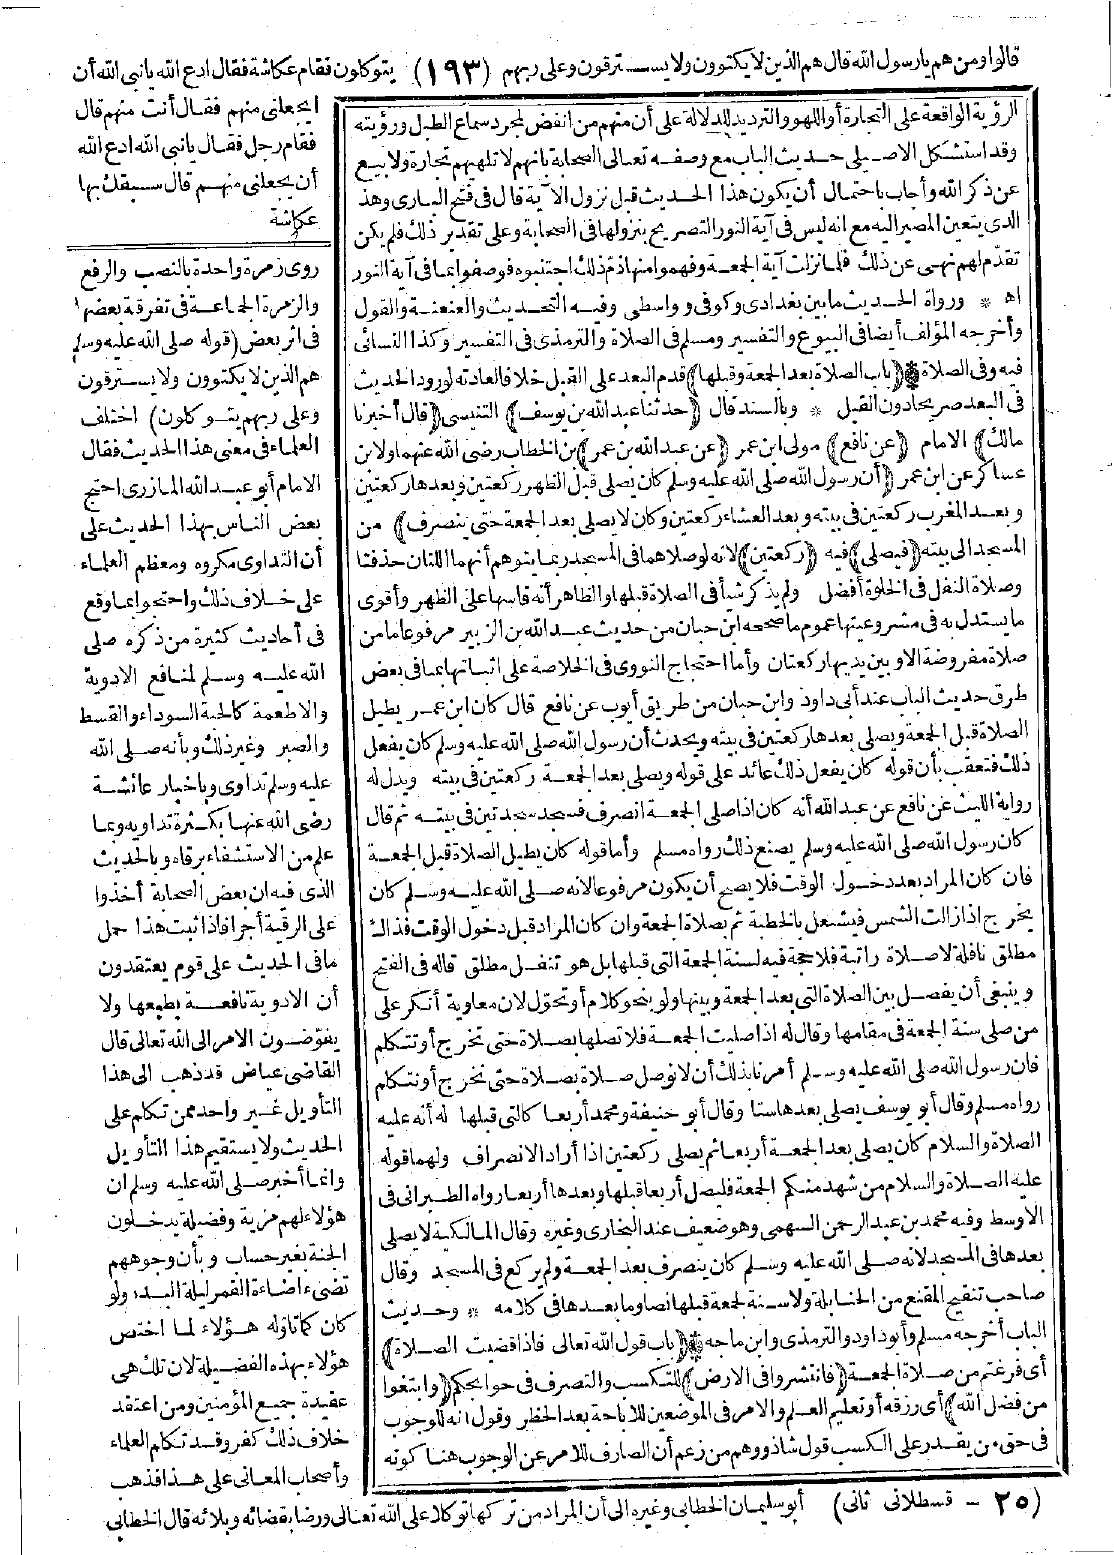 قالوا ومن هم يا رسول الله قال هم الذين لا يكتوون ولا يسترقون وعلى ربهم (١٩٣) يتوكلون فقام عكاشة فقال ادع الله يا نبي الله أن
يجعلني منهم فقال أنت منهم قال
فقام رجل فقال يا نبي الله ادع الله
أن يجعلني منهم قال سبقك بها
عكاشة
الرؤية الواقعة على التجارة أو اللهو والترديد للدلالة على أن منهم من انفض لمجرد سماع الطبل ورؤيته
وقد استشكل الاصيلي حديث الباب مع وصفه تعالى الصحابة بانهم لا تلهيهم تجارة ولا بيع
عن ذكر الله وأجاب باحتمال أن يكون هذا الحديث قبل نزول الآية قال في فتح الباري وهذا
الذي يتعين المصير اليه مع انه ليس في آية النور التصريح بنزولها في الصحابة وعلى تقدير ذلك فلم يكن
تقدّم لهم نهى عن ذلك فلما نزلت آية الجمعة وفهموا منها ذم ذلك اجتنبوه فوصفوا بما في آية النور
اه * ورواة الحديث ما بين بغدادي وكوفي وواسطي وفيه التحديث والعنعنة والقول
وأخرجه المؤلف أيضا في البيوع والتفسير ومسلم في الصلاة والترمذي في التفسير وكذا النسائي
فيه وفي الصلاة * (باب الصلاة بعد الجمعة وقبلها) قدم البعد على القبل خلافا لعادته لورود الحديث
في البعد صريحا دون القبل * وبالسند قال (حدثنا عبد الله بن يوسف) التنيسي (قال أخبرنا
مالك) الامام (عن نافع) مولى ابن عمر (عن عبد الله بن عمر) بن الخطاب رضي الله عنهما ولابن
عساكر عن ابن عمر (أن رسول الله صلى الله عليه وسلم كان يصلي قبل الظهر ركعتين وبعدها ركعتين
وبعد المغرب ركعتين في بيته وبعد العشاء ركعتين وكان لا يصلي بعد الجمعة حتى ينصرف) من
المسجد الى بيته (فيصلي) فيه (ركعتين) لانه لو صلاهما في المسجد ربما يتوهم أنهما اللتان حذفتا
وصلاة النفل في الخلوة أفضل ولم يذكر شيأ في الصلاة قبلها والظاهر أنه قاسها على الظهر وأقوى
ما يستدل به في مشروعيتها عموم ما صححه ابن حبان من حديث عبد الله بن الزبير مرفوعا ما من
صلاة مفروضة الا وبين يديها ركعتان وأما احتجاج النووي في الخلاصة على اثباتها بما في بعض
طرق حديث الباب عند أبي داود وابن حبان من طريق أيوب عن نافع قال كان ابن عمر يطيل
الصلاة قبل الجمعة ويصلي بعدها ركعتين في بيته ويحدث أن رسول الله صلى الله عليه وسلم كان يفعل
ذلك فتعقب بأن قوله كان يفعل ذلك عائد على قوله ويصلي بعد الجمعة ركعتين في بيته ويدل له
رواية الليث عن نافع عن عبد الله أنه كان اذا صلى الجمعة انصرف فسجد سجدتين في بيته ثم قال
كان رسول الله صلى الله عليه وسلم يصنع ذلك رواه مسلم وأما قوله كان يطيل الصلاة قبل الجمعة
فان كان المراد بعد دخول الوقت فلا يصح أن يكون مرفوعا لانه صلى الله عليه وسلم كان
يخرج اذا زالت الشمس فيشتغل بالخطبة ثم بصلاة الجمعة وان كان المراد قبل دخول الوقت فذلك
مطلق نافلة لا صلاة راتبة فلا حجة فيه لسنة الجمعة التي قبلها بل هو تنفل مطلق قاله في الفتح
وينبغي أن يفصل بين الصلاة التي بعد الجمعة وبينها ولو بنحو كلام أو تحوّل لان معاوية أنكر على
من صلى سنة الجمعة في مقامها وقال له اذا صليت الجمعة فلا تصلها بصلاة حتى تخرج أو تتكلم
فان رسول الله صلى الله عليه وسلم أمرنا بذلك أن لا نوصل صلاة بصلاة حتى نخرج أو نتكلم
رواه مسلم وقال أبو يوسف يصلي بعدها ستا وقال أبو حنيفة ومحمد أربعا كالتي قبلها له أنه عليه
الصلاة والسلام كان يصلي بعد الجمعة أربعا ثم يصلي ركعتين اذا أراد الانصراف ولهما قوله
عليه الصلاة والسلام من شهد منكم الجمعة فليصل أربعا قبلها وبعدها أربعا رواه الطبراني في
الاوسط وفيه محمد بن عبد الرحمن السهمي وهو ضعيف عند البخاري وغيره وقال المالكية لا يصلي
بعدها في المسجد لانه صلى الله عليه وسلم كان ينصرف بعد الجمعة ولم يركع في المسجد وقال
صاحب تنقيح المقنع من الحنابلة ولا سنة لجمعة قبلها نصا وما بعدها في كلامه * وحديث
الباب أخرجه مسلم وأبو داود والترمذي وابن ماجه * (باب قول الله تعالى فاذا قضيت الصلاة)
أي فرغتم من صلاة الجمعة (فانتشروا في الارض) للتكسب والتصرف في حوايجكم (وابتغوا
من فضل الله) أي رزقه أو تعليم العلم والامر في الموضعين للاباحة بعد الحظر وقول انه للوجوب
في حق من يقدر على الكسب قول شاذ ووهم من زعم أن الصارف للامر عن الوجوب هنا كونه
روى زمرة واحدة بالنصب والرفع
والزمرة الجماعة في تفرقة بعضها
في اثر بعض (قوله صلى الله عليه وسلم
هم الذين لا يكتوون ولا يسترقون
وعلى ربهم يتوكلون) اختلف
العلماء في معنى هذا الحديث فقال
الامام أبو عبد الله المازري احتج
بعض الناس بهذا الحديث على
أن التداوي مكروه ومعظم العلماء
على خلاف ذلك واحتجوا بما وقع
في أحاديث كثيرة من ذكره صلى
الله عليه وسلم لمنافع الادوية
والاطعمة كالحبة السوداء والقسط
والصبر وغير ذلك وبأنه صلى الله
عليه وسلم تداوى وباخبار عائشة
رضي الله عنها بكثرة تداويه وبما
علم من الاستشفاء برقاه وبالحديث
الذي فيه ان بعض الصحابة أخذوا
على الرقية أجرا فاذا ثبت هذا حمل
ما في الحديث على قوم يعتقدون
أن الادوية نافعة بطبعها ولا
يفوّضون الامر الى الله تعالى قال
القاضي عياض قد ذهب الى هذا
التأويل غير واحد ممن تكلم على
الحديث ولا يستقيم هذا التأويل
وانما أخبر صلى الله عليه وسلم ان
هؤلاء لهم مزية وفضيلة يدخلون
الجنة بغير حساب وبأن وجوههم
تضيء اضاءة القمر ليلة البدر ولو
كان كما تاوله هؤلاء لما اختص
هؤلاء بهذه الفضيلة لان تلك هي
عقيدة جميع المؤمنين ومن اعتقد
خلاف ذلك كفر وقد تكلم العلماء
وأصحاب المعاني على هذا فذهب
أبو سليمان الخطابي وغيره الى أن المراد من تركها توكلا على الله تعالى ورضا بقضائه وبلائه قال الخطابي
(٢٥ - قسطلاني ثاني)